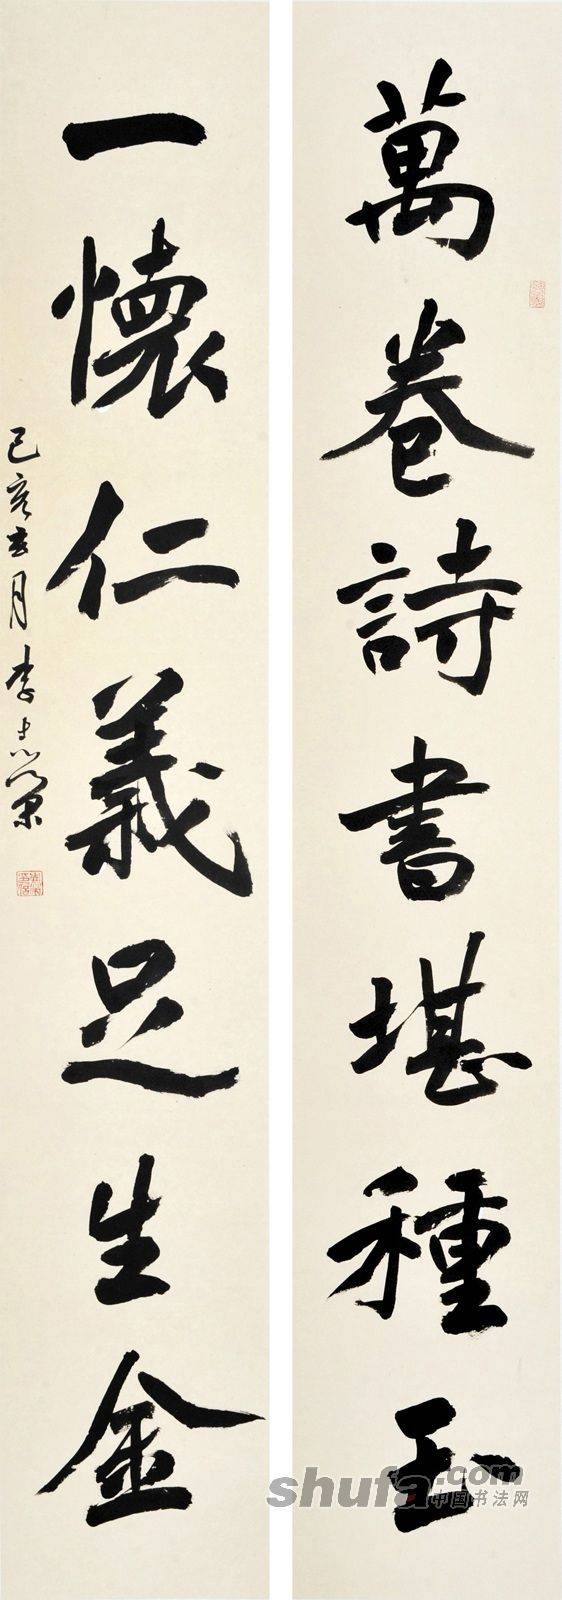 萬卷詩書堪種玉
一懷仁義足生金
己亥玄月李志榮
shufa.com
中国书法网